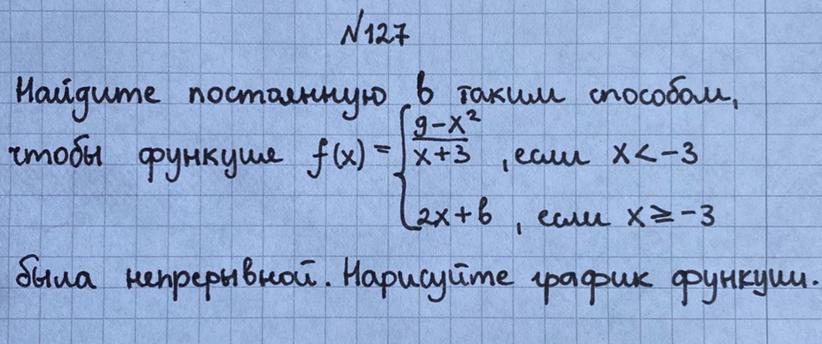 №127
Найдите постоянную b таким способом,
чтобы функция f(x) = { (9-x²)/(x+3), если x < -3
2x+b, если x ≥ -3
была непрерывной. Нарисуйте график функции.